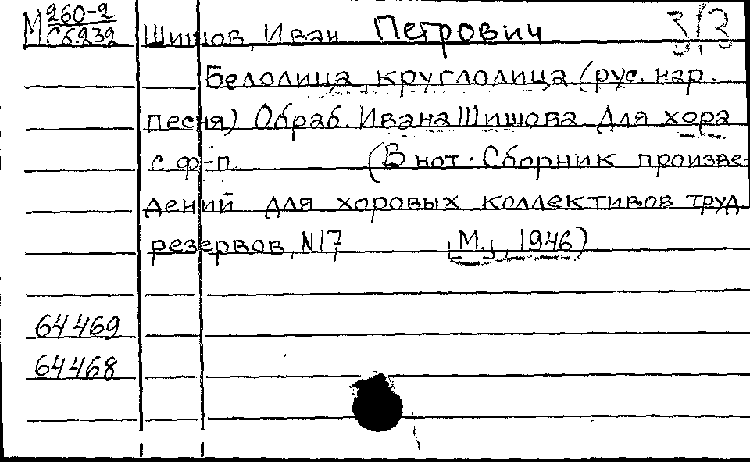 М 260-2 3/3
С6939 Шишов, Иван Петрович
Белолица, круглолица (рус. нар.
песня) Обраб. Ивана Шишова. Для хора
с ф-п. (В нот. Сборник произве-
дений для хоровых коллективов труд.
резервов, N17 М., 1946)
64469
64468